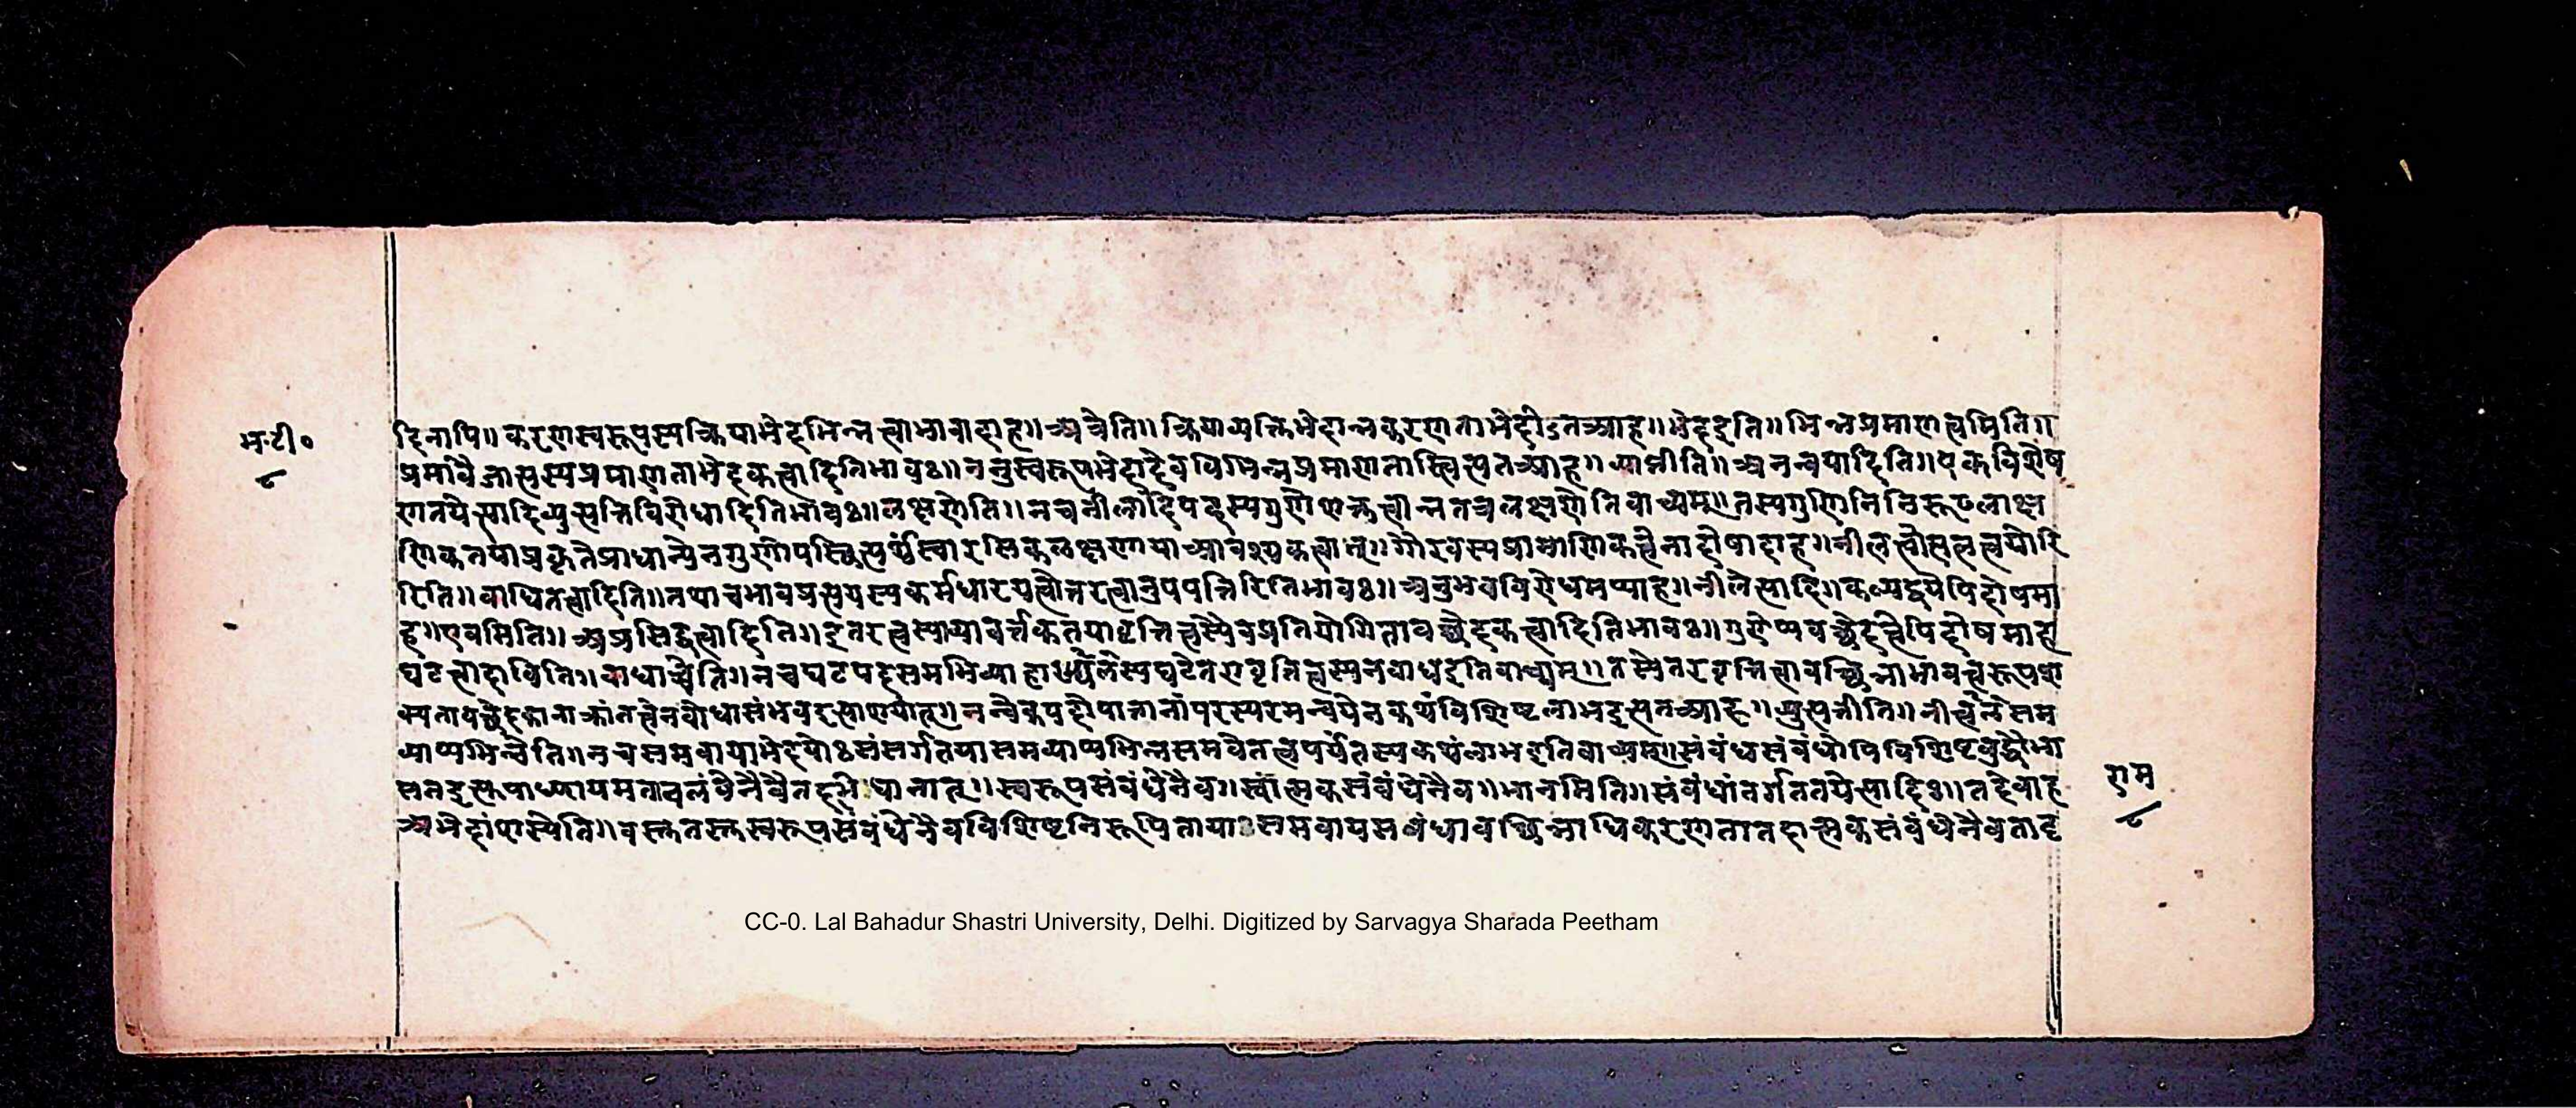 भ.टी०
८
दिनापि॥ करणस्वरूपस्य क्रियाभेदभिन्नत्वाभावादाह॥ अत्रेति॥ क्रियाव्यक्तिभेदान्नकरणताभेदोऽतआह॥ भेदइति॥ भिन्नप्रमाणत्वमिति॥
प्रमावैजात्यस्यप्रमाणताभेदकत्वादितिभावः॥ ननुस्वरूपभेदादेवविभिन्नप्रमाणतास्त्वित्यतआह॥ यानीति॥ अनन्वयादिति॥ एकविशेष
णतयेत्यादिव्युत्पत्तिविरोधादितिभावः॥ लक्षणेति॥ नचनीलादिपदस्यगुणेशक्तत्वान्नतत्रलक्षणेतिवाच्यम्॥ तस्यगुणिनिनिरूढलाक्ष
णिकतयाप्रकृतेप्राधान्येनगुणोपस्थित्यर्थंस्वारसिकलक्षणायाआवश्यकत्वात्॥ गौरवस्यप्रामाणिकत्वेनादोषादाह॥ नीलत्वोत्पलत्वयोरि
रिति॥ बाधितत्वादिति॥ तथाचभावप्रत्ययस्यकर्मधारयत्वोत्तरत्वानुपपत्तिरितिभावः॥ अनुभवविरोधमप्याह॥ नीलेत्यादि॥ कल्पद्वयेपिदोषमा
ह॥ एवमिति॥ अप्रसिद्धत्वादिति॥ इतरत्वस्याव्यावर्त्तकतयावृत्तित्वस्यैवप्रतियोगितावच्छेदकत्वादितिभावः॥ गुणेप्यवच्छेदत्वेपिदोषमाह
घटत्वादाविति॥ बाधाच्चेति॥ नचघटपदसमभिव्याहाघटेतरावृत्तित्वस्यनबाधइतिवाच्यम्॥ तस्येतरवृत्तित्वावच्छिन्नाभावत्वरूपश
क्यतावच्छेदकानाक्रांतत्वेनबोधासंभवइत्याशयात्॥ नन्वेकपदोपात्तानांपरस्परमन्वयेनकथंविशिष्टलाभइत्यतआह॥ व्युत्पत्तीति॥ नीलत्वेनसम
व्याप्यभिन्नेति॥ नचसमवायाभेदयोःसंसर्गतयासमव्याप्यभिन्नसमवेतत्वपर्यंतस्यकथंलाभइतिवाच्यम्॥ संबंधसंबंधोपिविशिष्टबुद्धौभा
सतइत्युपाध्यायमतावलंबेनैवैतदभिधानात्॥ स्वरूपसंबंधेनैव॥ स्वात्मकसंबंधेनैव॥ भानमिति॥ संबंधांतर्गततयेत्यादिः॥ तदेवाह
अभेदांशस्येति॥ वस्तुतस्तुस्वरूपसंबंधेनैवविशिष्टनिरूपितायाःसमवायसंबंधावच्छिन्नाधिकरणतातदात्मकसंबंधेनैवतादृ
राम
८
CC-0. Lal Bahadur Shastri University, Delhi. Digitized by Sarvagya Sharada Peetham